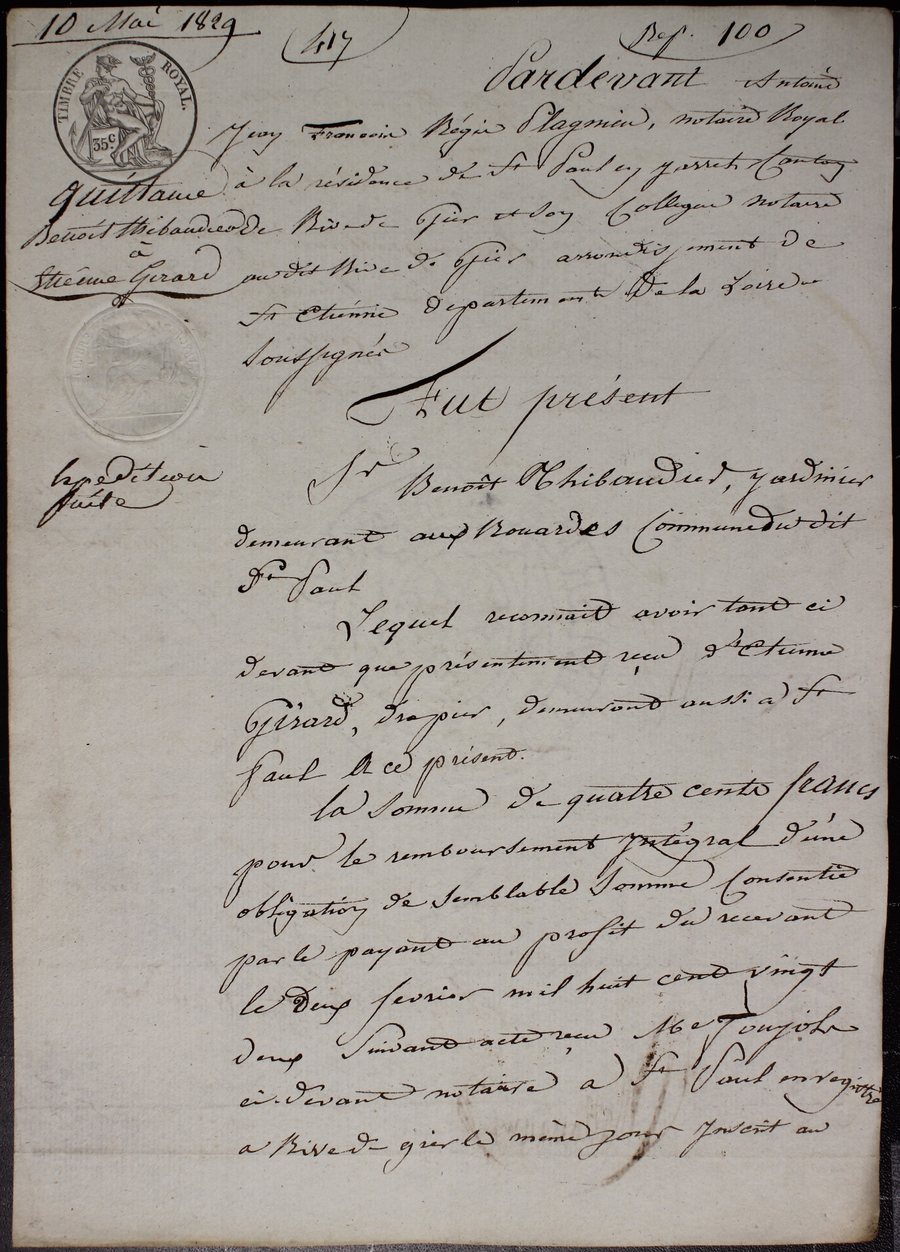 10 Mai 1829
417
Rep. 100
TIMBRE ROYAL.
35c
quittance
Benoit Thibaudier
à
Etiènne Girard
Expedition
faite
Pardevant Antoine
Jean François Régis Plagnieu, notaire Royal
à la résidence de St Paul en jarret Canton
de Rive de Gier et Son Collegue notaire
au dit Rive de Gier arrondissement de
St Etiénne departement De la Loire
Soussignés
Fut présent
Sr Benoît Thibaudier, jardinier
demeurant aux Rouardes Commune du dit
St Paul
Lequel reconnait avoir tant ci
devant que présentement reçu d'Etienne
Girard, drapier, demeurant aussi a St
Paul a ce présent.
la Somme de quatre cents francs
pour le remboursement intégral d'une
obligation de Semblable Somme Consentie
par le payant au profit du recevant
le Deux fevrier mil huit cent vingt
deux Suivant acte reçu Me Toujols
ci-devant notaire a St Paul enregistré
a Rive de gier le même jour inscrit au